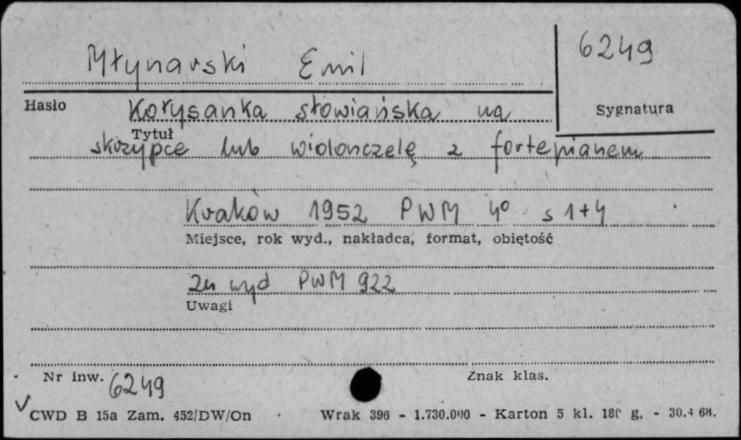 Młynarski Emil
6249
Hasło
Kołysanka słowiańska na
Sygnatura
Tytuł
skrzypce lub wiolonczelę z fortepianem
Kraków 1952 PWM 4° s 1+4
Miejsce, rok wyd., nakładca, format, objętość
zn wyd PWM 922
Uwagi
Nr inw. 6249
Znak klas.
CWD B 15a Zam. 452/DW/On · Wrak 396 - 1.730.000 - Karton 5 kl. 180 g. - 30.4 68.